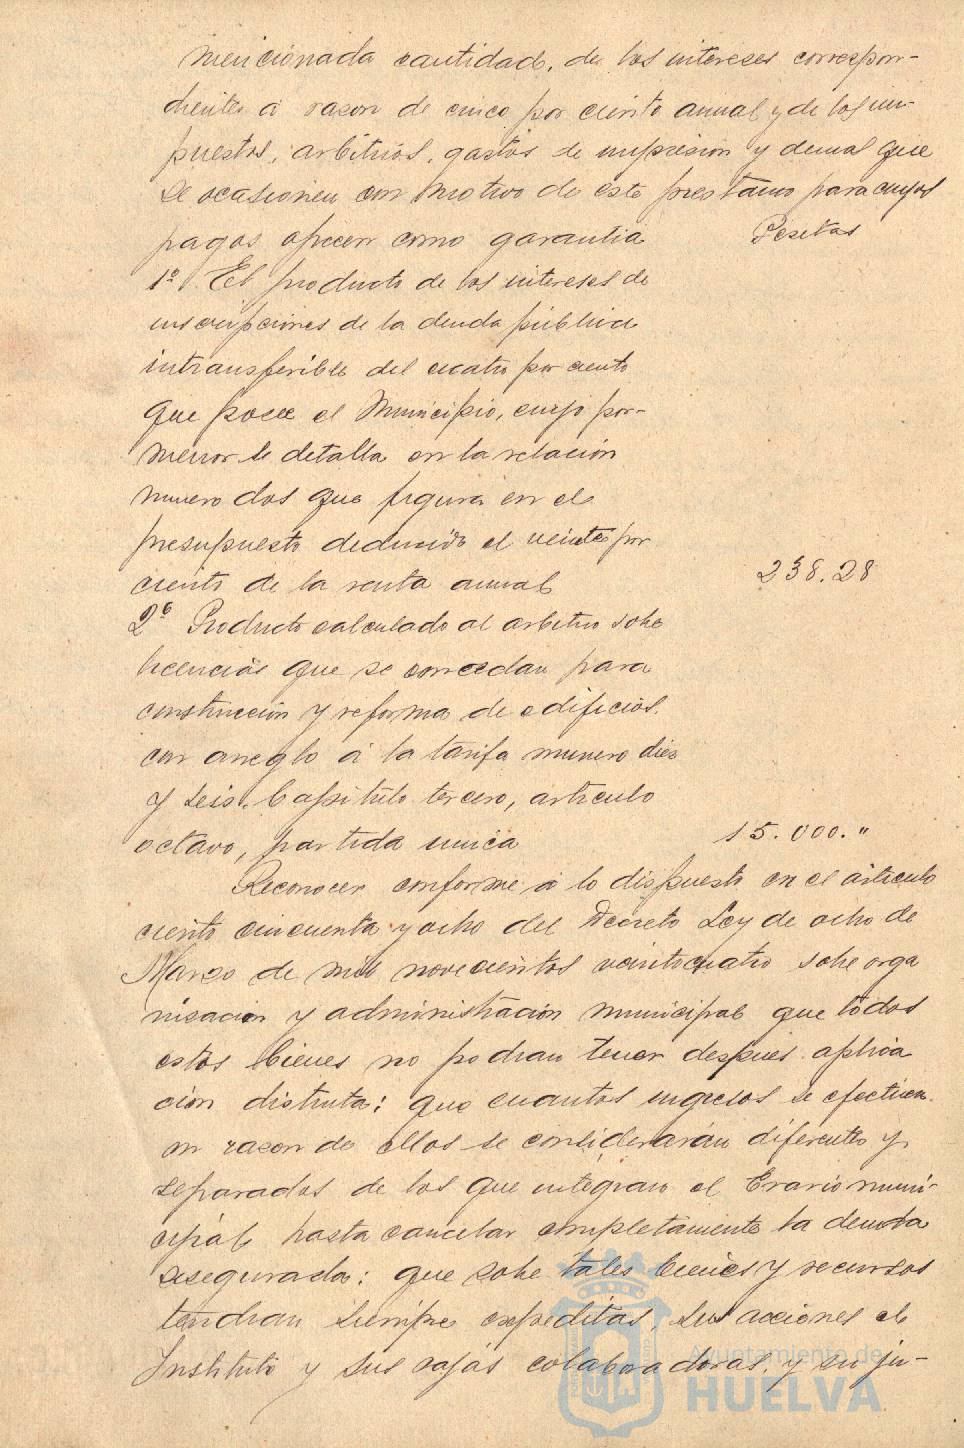 mencionada cantidad, de los intereses correspon-
dientes á razon de cinco por ciento anual y de los im-
puestos, arbitrios, gastos de impresion y demas que
se ocasionen con motivo de este prestamo para cuyos
pagos ofrecen como garantia Pesetas
1º El producto de los intereses de
inscripciones de la deuda pública
intransferible del cuatro por ciento
que posee el Municipio, cuyo por-
menor se detalla en la relación
numero dos que figura en el
presupuesto deducido el veinte por
ciento de la renta anual 238.28
2º Producto calculado al arbitrio sobre
licencias que se concedan para
construcción y reforma de edificios.
con arreglo á la tarifa numero diez
y seis. Capitulo tercero, articulo
octavo, partida unica 15.000."
Reconocer conforme á lo dispuesto en el articulo
ciento cincuenta y ocho del Decreto Ley de ocho de
Marzo de mil novecientos veinticuatro sobre orga
nización y administración municipal que todos
estos bienes no podran tener despues aplica
ción distinta: que cuantos ingresos se efectuen
en razon de ellos se considerarán diferentes y
separados de los que integran el Erario muni-
cipal hasta cancelar completamente la deuda
asegurada: que sobre tales bienes y recursos
tendran siempre expeditas, sus acciones el
Instituto y sus cajas colaboradoras, y su ju-
Ayuntamiento de
HUELVA